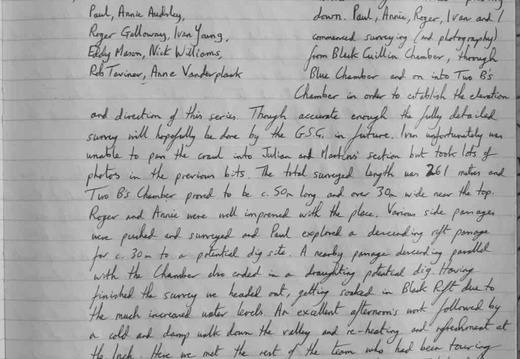 Paul, Annie Audsley,
Roger Galloway, Ivan Young,
Eddy Mason, Nick Williams,
Rob Taviner, Anne Vanderplank
down. Paul, Annie, Roger, Ivan and I
commenced surveying (and photography)
from Black Cuillin Chamber, through
Blue Chamber and on into Two B's
Chamber in order to establish the elevation
and direction of this series. Though accurate enough the fully detailed
survey will hopefully be done by the G.S.G. in future. Ivan unfortunately was
unable to pass the crawl into Julian and Martin's section but took lots of
photos in the previous bits. The total surveyed length was 261 metres and
Two B's Chamber proved to be c.50m long and over 30m wide near the top.
Roger and Annie were well impressed with the place. Various side passages
were pushed and surveyed and Paul explored a descending rift passage
for c.30m to a potential dig site. A nearby passage descending parallel
with the Chamber also ended in a draughting potential dig. Having
finished the survey we headed out, getting soaked in Black Rift due to
the much increased water levels. An excellent afternoon's work followed by
a cold and damp walk down the valley and re-heating and refreshment at
the Inch. Here we met the rest of the team who had been touring